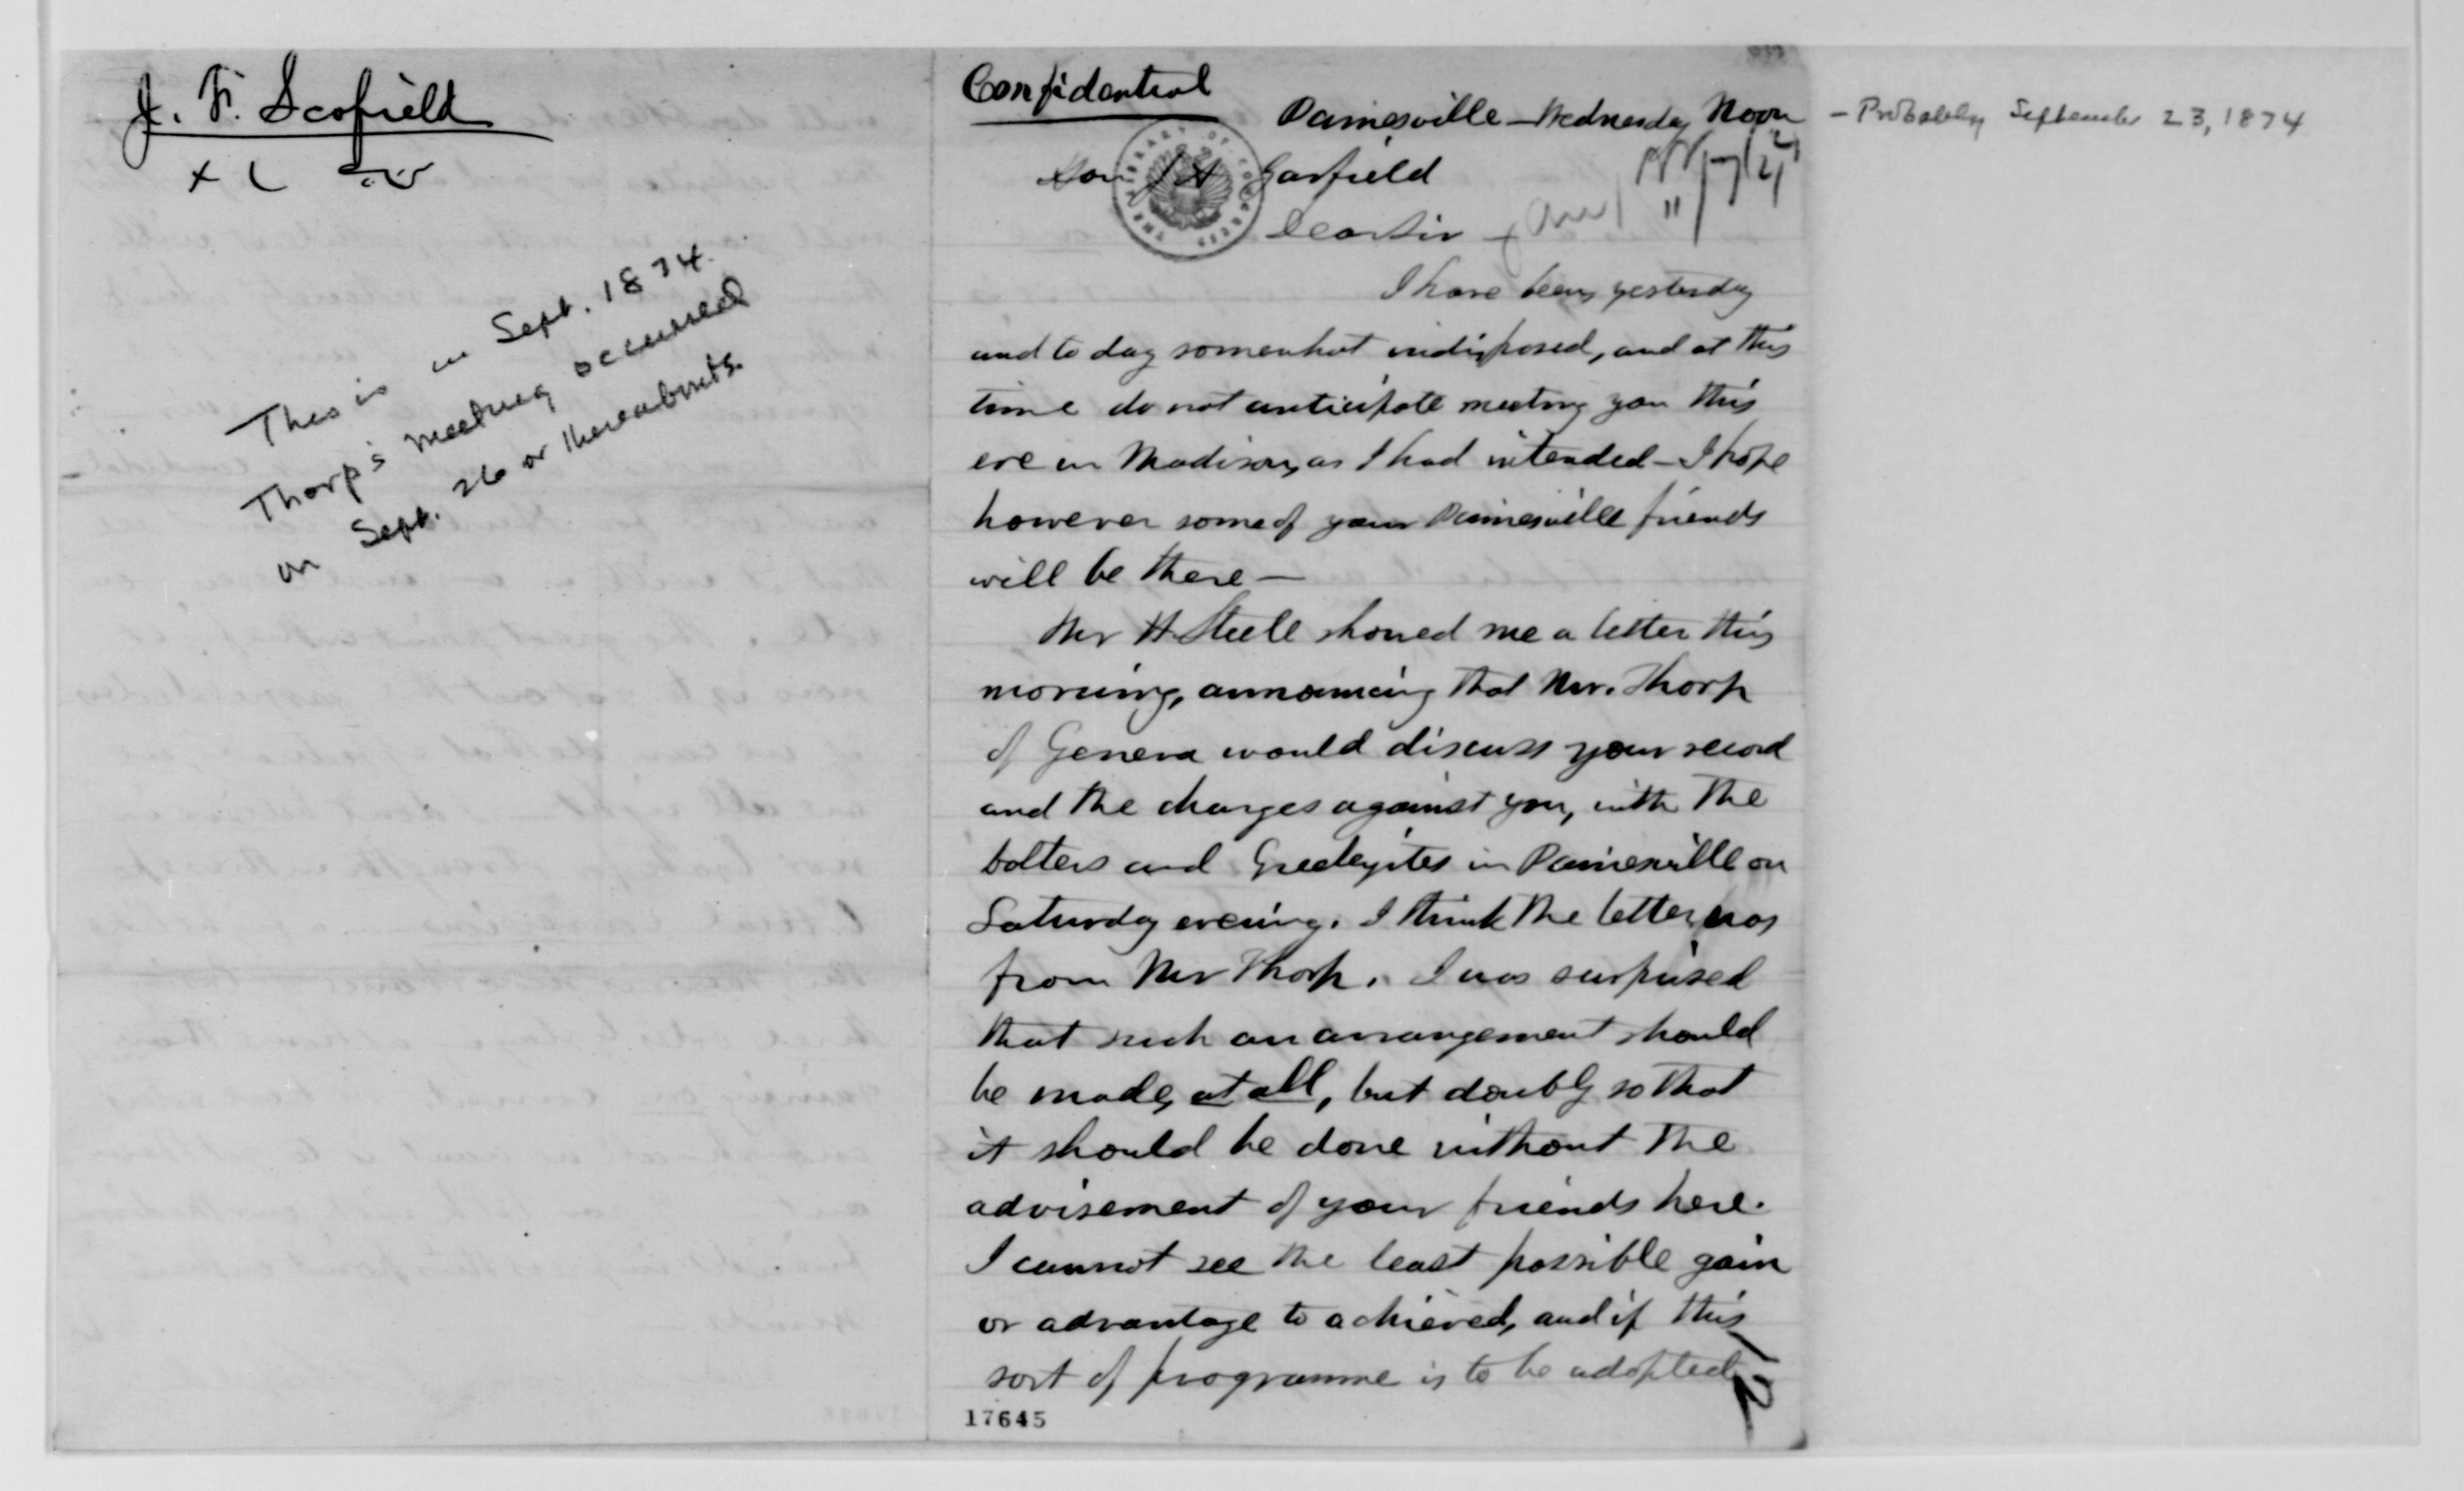 J. F. Scofield
This is in Sept. 1874.
Thorp's meeting occurred
on Sept. 26 or thereabouts.
Confidential
Painesville - Wednesday Noon
- Probably September 23, 1874
Hon J A Garfield
Dear Sir
I have been yesterday
and to day somewhat indisposed, and at this
time do not anticipate meeting you this
eve in Madison, as I had intended - I hope
however some of your Painesville friends
will be there -
Mr H Steele showed me a letter this
morning, announcing that Mr. Thorp
of Geneva would discuss your record
and the charges against you, with the
bolters and Greeleyites in Painesville on
Saturday evening. I think the letter was
from Mr Thorp. I was surprised
that such an arrangement should
be made, at all, but doubly so that
it should be done without the
advisement of your friends here.
I cannot see the least possible gain
or advantage to achieved, and if this
sort of programme is to be adopted
17645